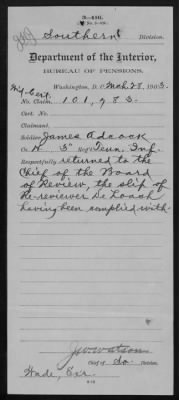 3-446.
Southern Division.
Department of the Interior,
BUREAU OF PENSIONS,
Washington, D. C., Mch 28, 1903.
No. Claim 101,983.
Cert. No.
Claimant
Soldier James Adcock
Co. H. 5" Reg't Tenn. Inf.
Respectfully returned to the
Chief of the Board
of Review, the slip of
Re-reviewer De Loach
having been complied with.
J. W. Watson
Chief of So. Division.
Wade, Exr.